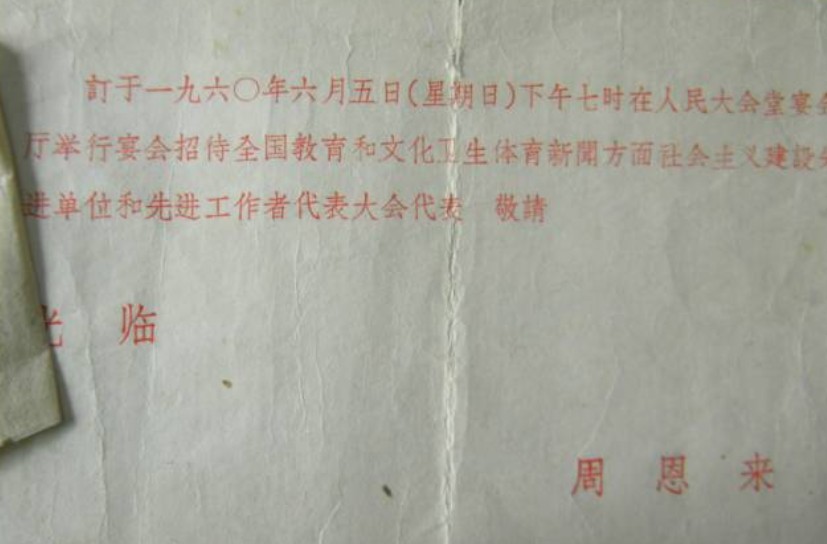 訂于一九六〇年六月五日(星期日)下午七时在人民大会堂宴会
厅举行宴会招待全国教育和文化卫生体育新聞方面社会主义建設先
进单位和先进工作者代表大会代表 敬請
光 临
周 恩 来